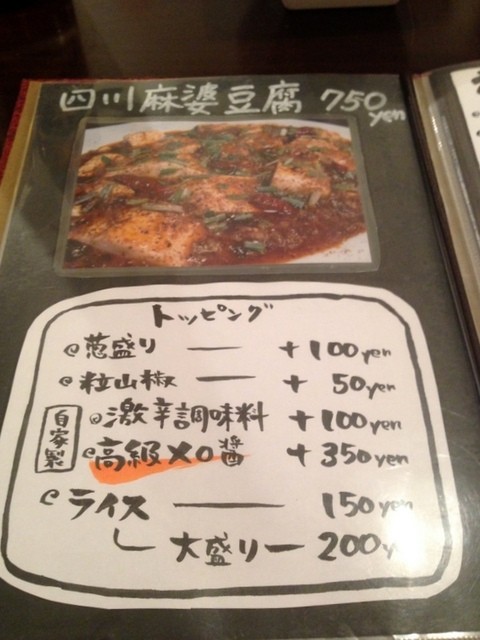 四川麻婆豆腐 750yen
トッピング
葱盛り — +100yen
粒山椒 — + 50yen
自家製
激辛調味料 +100yen
高級XO醤 +350yen
ライス — 150yen
大盛り — 200y